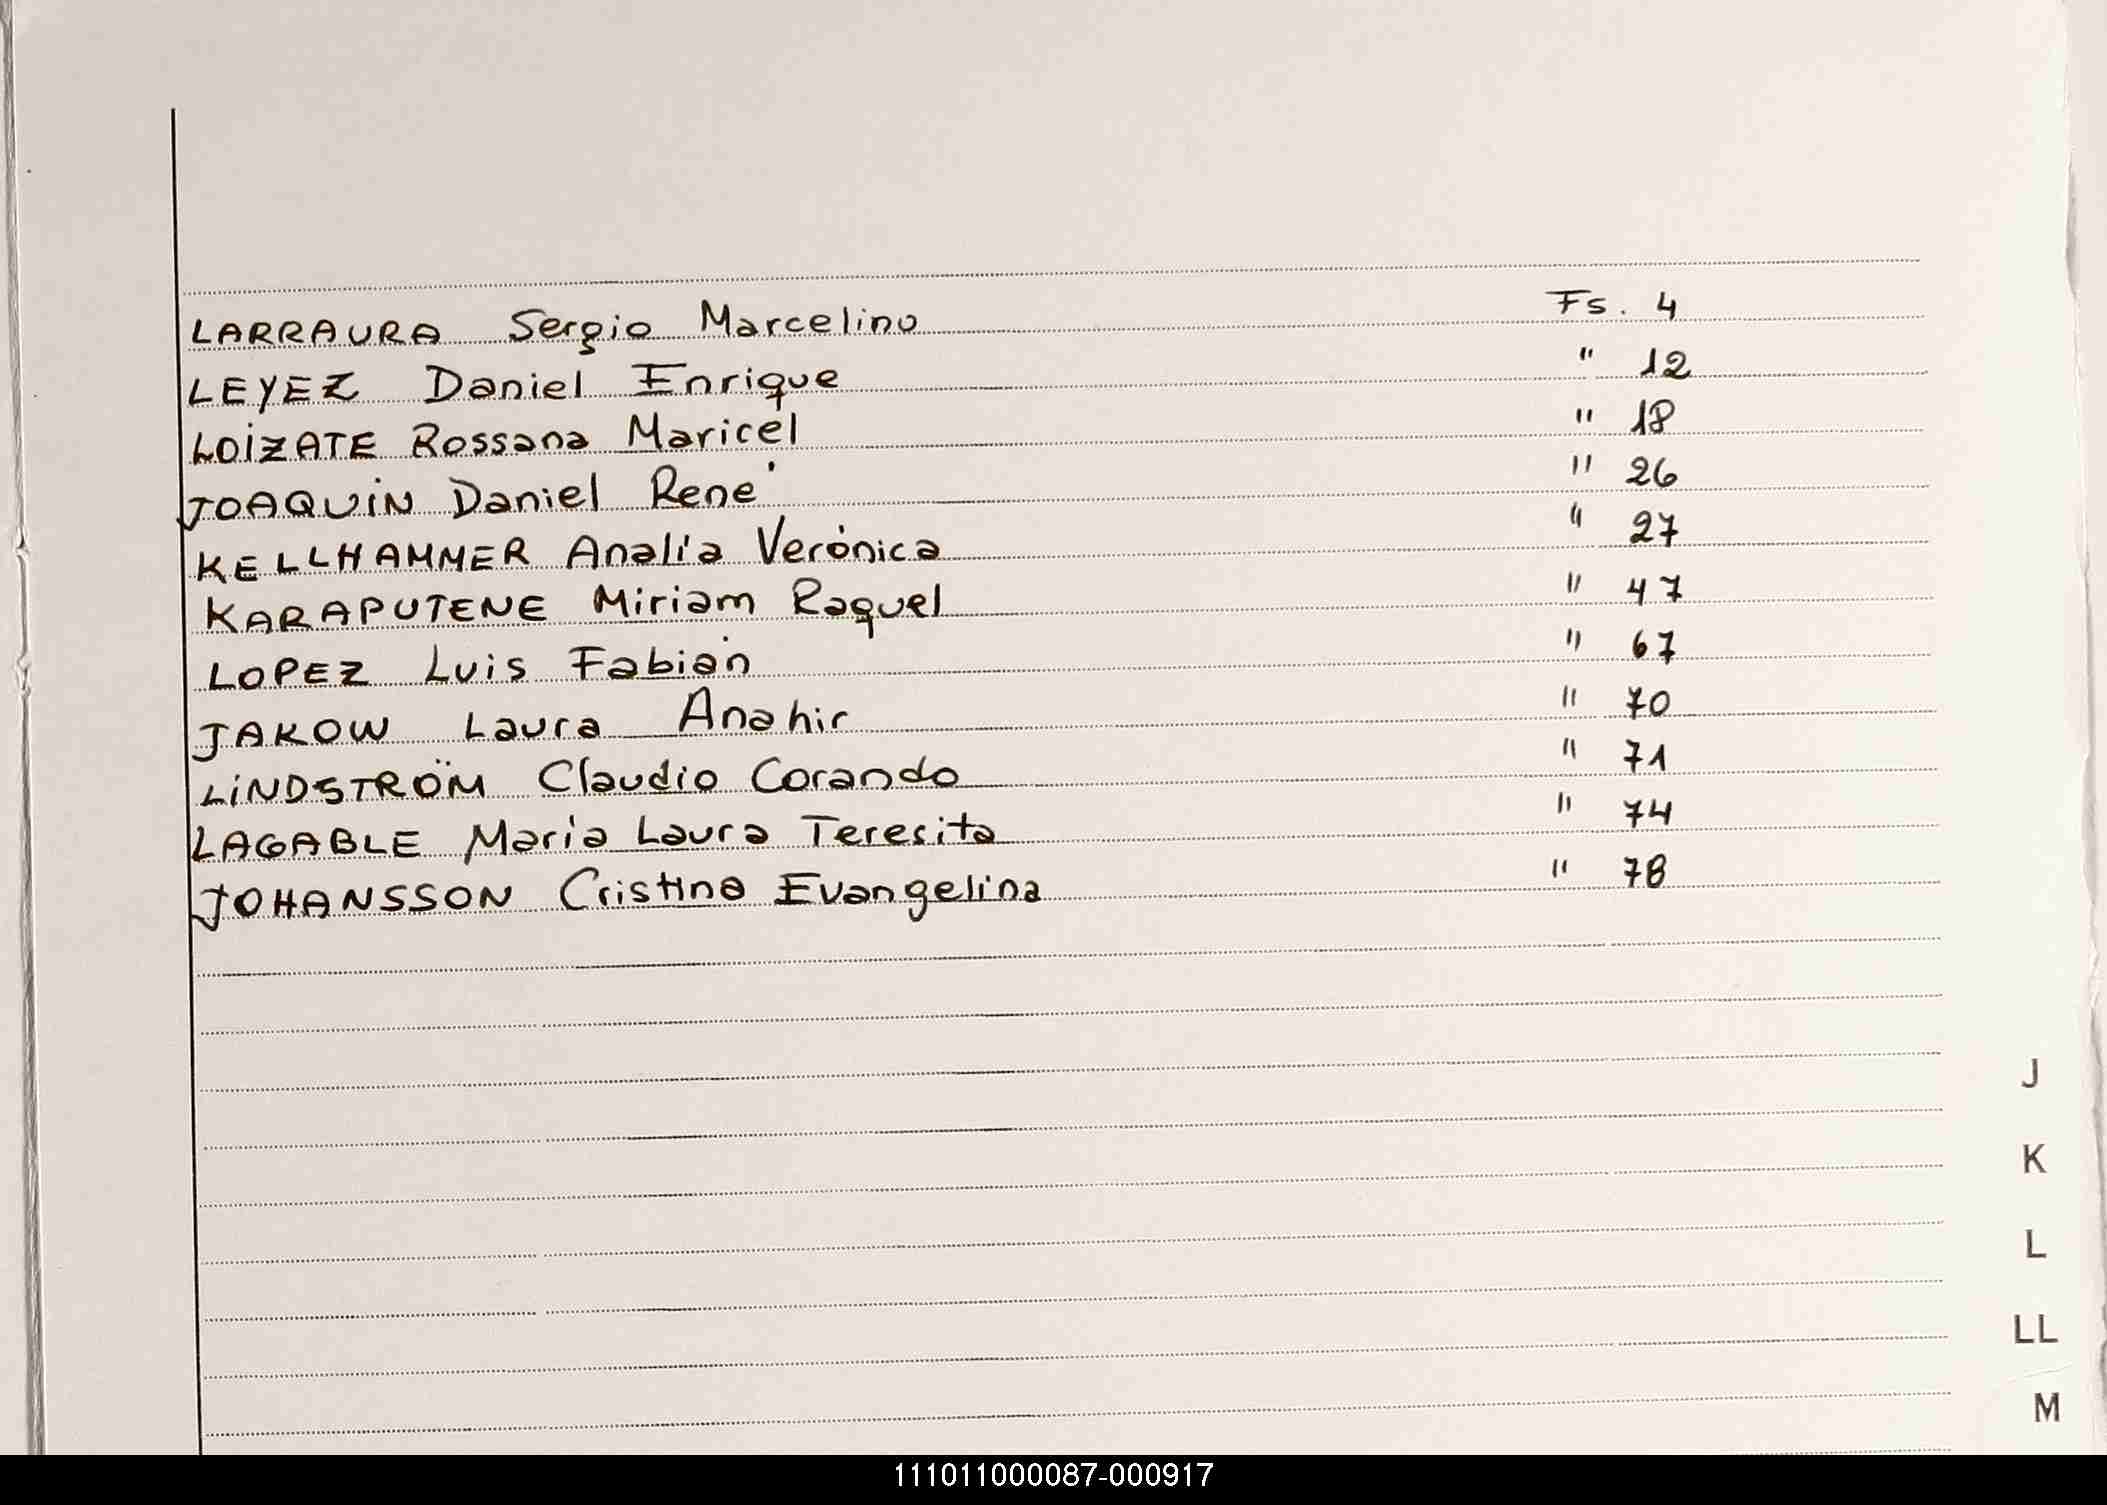 LARRAURA Sergio Marcelino Fs. 4
LEYEZ Daniel Enrique " 12
LOIZATE Rossana Maricel " 18
JOAQUIN Daniel René " 26
KELLHAMMER Analía Verónica " 27
KARAPUTENE Miriam Raquel " 47
LOPEZ Luis Fabián " 67
JAKOW Laura Anahir " 70
LINDSTRÖM Claudio Corando " 71
LAGABLE María Laura Teresita " 74
JOHANSSON Cristina Evangelina " 78
J
K
L
LL
M
111011000087-000917